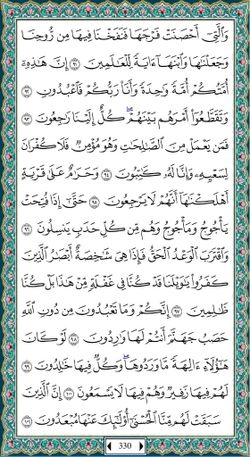 وَٱلَّتِىٓ أَحْصَنَتْ فَرْجَهَا فَنَفَخْنَا فِيهَا مِن رُّوحِنَا
وَجَعَلْنَٰهَا وَٱبْنَهَآ ءَايَةً لِّلْعَٰلَمِينَ ٩١ إِنَّ هَٰذِهِۦٓ
أُمَّتُكُمْ أُمَّةً وَٰحِدَةً وَأَنَا۠ رَبُّكُمْ فَٱعْبُدُونِ ٩٢
وَتَقَطَّعُوٓا۟ أَمْرَهُم بَيْنَهُمْ ۖ كُلٌّ إِلَيْنَا رَٰجِعُونَ ٩٣
فَمَن يَعْمَلْ مِنَ ٱلصَّٰلِحَٰتِ وَهُوَ مُؤْمِنٌ فَلَا كُفْرَانَ
لِسَعْيِهِۦ وَإِنَّا لَهُۥ كَٰتِبُونَ ٩٤ وَحَرَٰمٌ عَلَىٰ قَرْيَةٍ
أَهْلَكْنَٰهَآ أَنَّهُمْ لَا يَرْجِعُونَ ٩٥ حَتَّىٰٓ إِذَا فُتِحَتْ
يَأْجُوجُ وَمَأْجُوجُ وَهُم مِّن كُلِّ حَدَبٍ يَنسِلُونَ ٩٦
وَٱقْتَرَبَ ٱلْوَعْدُ ٱلْحَقُّ فَإِذَا هِىَ شَٰخِصَةٌ أَبْصَٰرُ ٱلَّذِينَ
كَفَرُوا۟ يَٰوَيْلَنَا قَدْ كُنَّا فِى غَفْلَةٍ مِّنْ هَٰذَا بَلْ كُنَّا
ظَٰلِمِينَ ٩٧ إِنَّكُمْ وَمَا تَعْبُدُونَ مِن دُونِ ٱللَّهِ
حَصَبُ جَهَنَّمَ أَنتُمْ لَهَا وَٰرِدُونَ ٩٨ لَوْ كَانَ
هَٰٓؤُلَآءِ ءَالِهَةً مَّا وَرَدُوهَا ۖ وَكُلٌّ فِيهَا خَٰلِدُونَ ٩٩
لَهُمْ فِيهَا زَفِيرٌ وَهُمْ فِيهَا لَا يَسْمَعُونَ ١٠٠ إِنَّ ٱلَّذِينَ
سَبَقَتْ لَهُم مِّنَّا ٱلْحُسْنَىٰٓ أُو۟لَٰٓئِكَ عَنْهَا مُبْعَدُونَ ١٠١
330